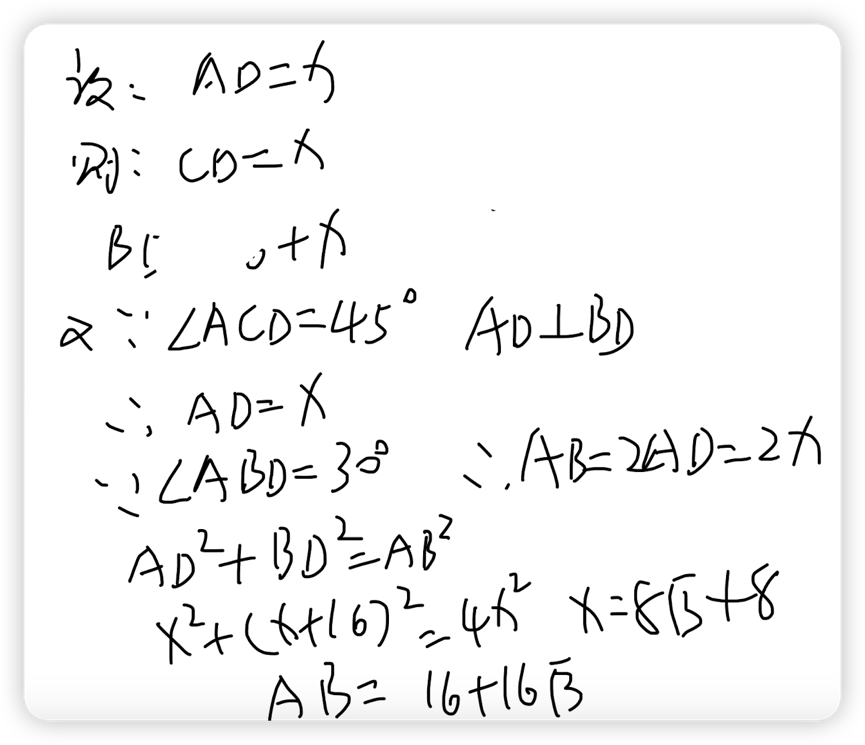 设: AD=x
则: CD=x
B +x
又∵∠ACD=45° AD⊥BD
∴ AD=x
∵∠ABD=30° ∴AB=2AD=2x
AD²+BD²=AB²
x²+(x+16)²=4x² x=8√3+8
AB= 16+16√3